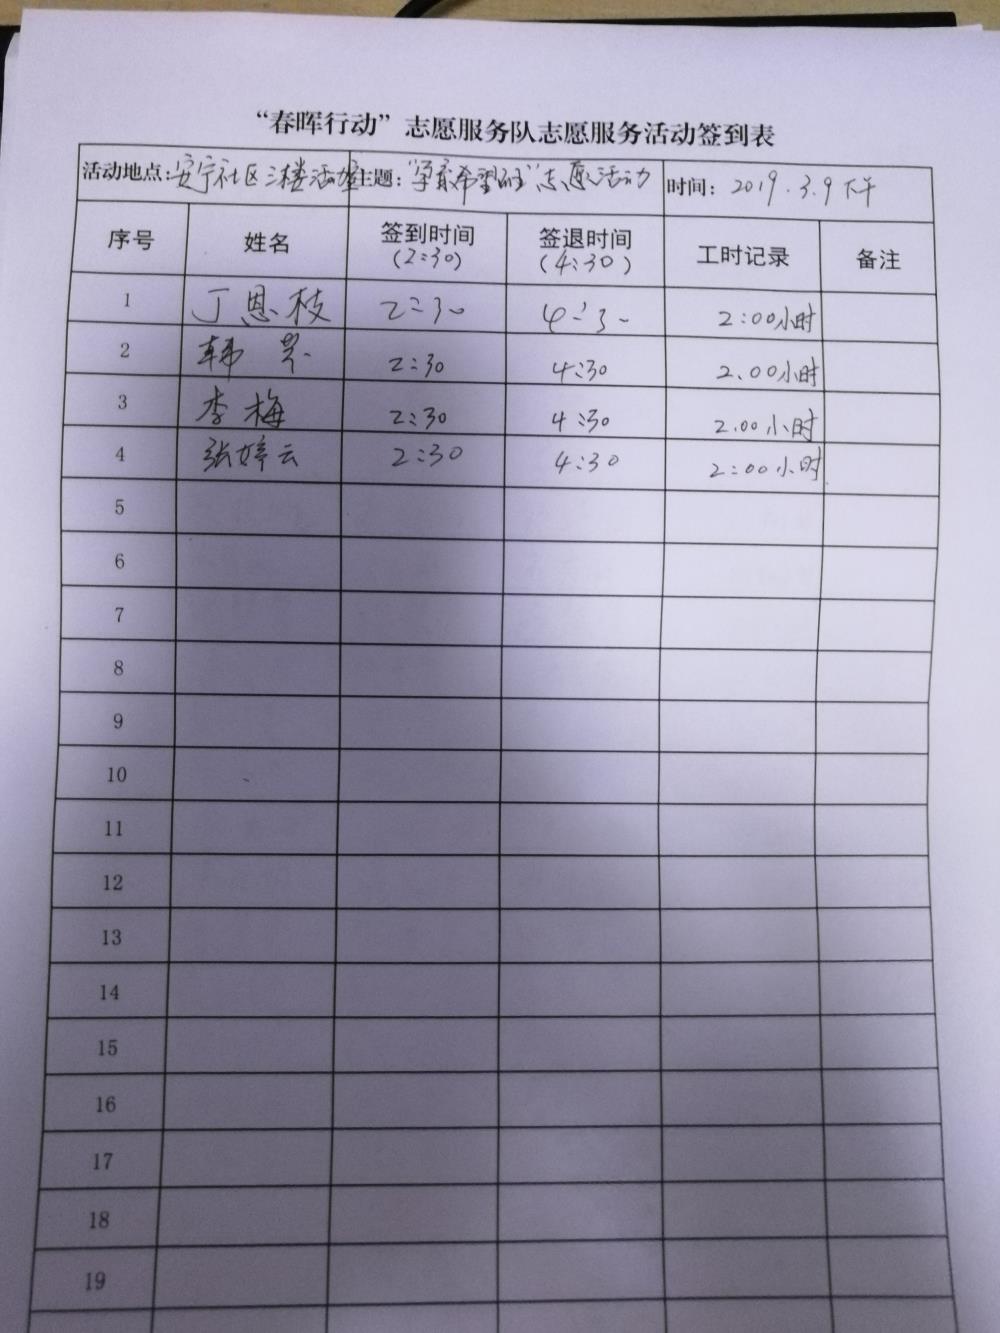 “春晖行动”志愿服务队志愿服务活动签到表
活动地点:安宁社区三楼活动室 主题:“学亲希望的”志愿活动 时间:2019.3.9下午
序号 姓名 签到时间 签退时间 工时记录 备注
(2:30) (4:30)
1 丁恩枝 2:30 4:30 2:00小时
2 韩 2:30 4:30 2.00小时
3 李梅 2:30 4:30 2.00小时
4 张婷云 2:30 4:30 2:00小时
5
6
7
8
9
10
11
12
13
14
15
16
17
18
19